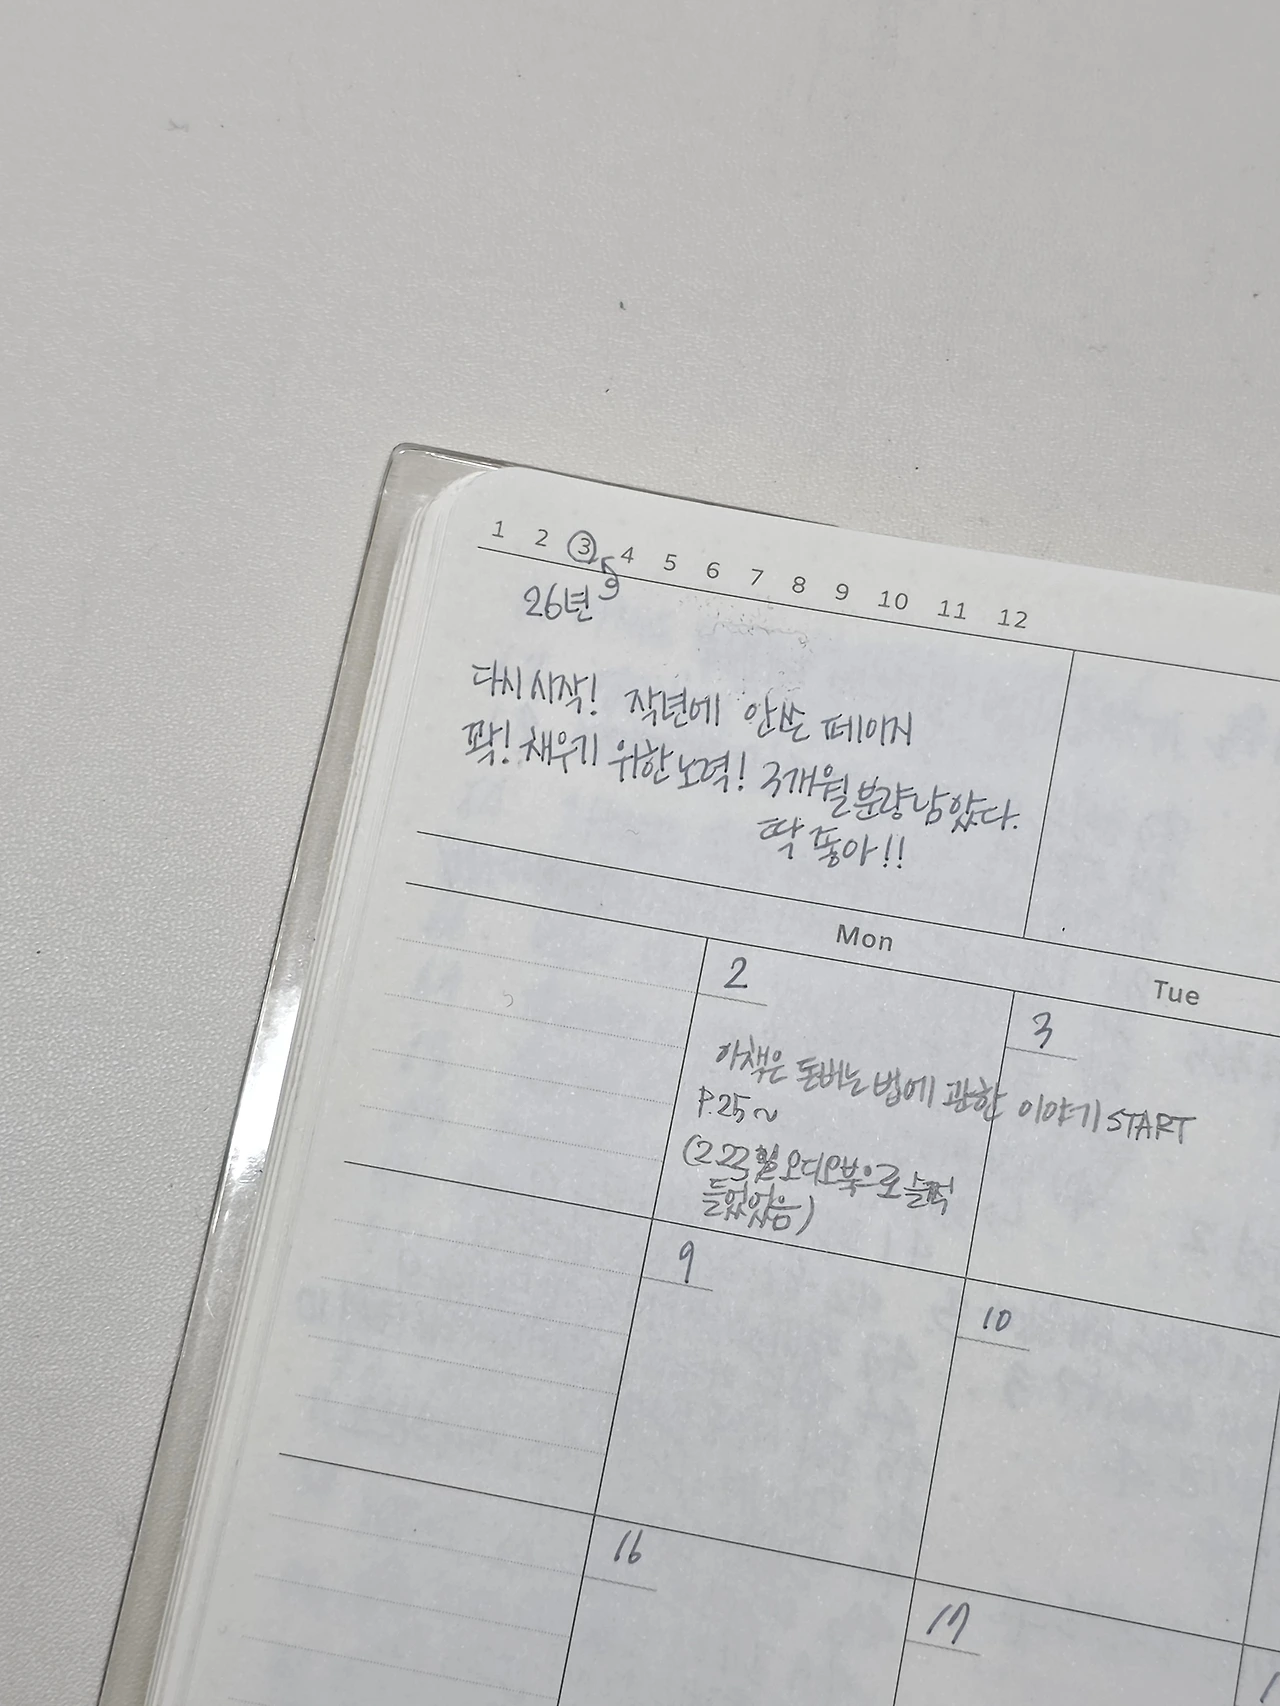 1 2 3 4 5 6 7 8 9 10 11 12
26년
다시 시작! 작년에 안쓴 페이지
꽉! 채우기 위한 노력! 3개월 분량 남았다.
딱 좋아!!
Mon
Tue
2
3
이 책은 돈버는 법에 관한 이야기 START
P.25~
(2.23월 오디오북으로 슬쩍
들었었음)
9
10
16
17